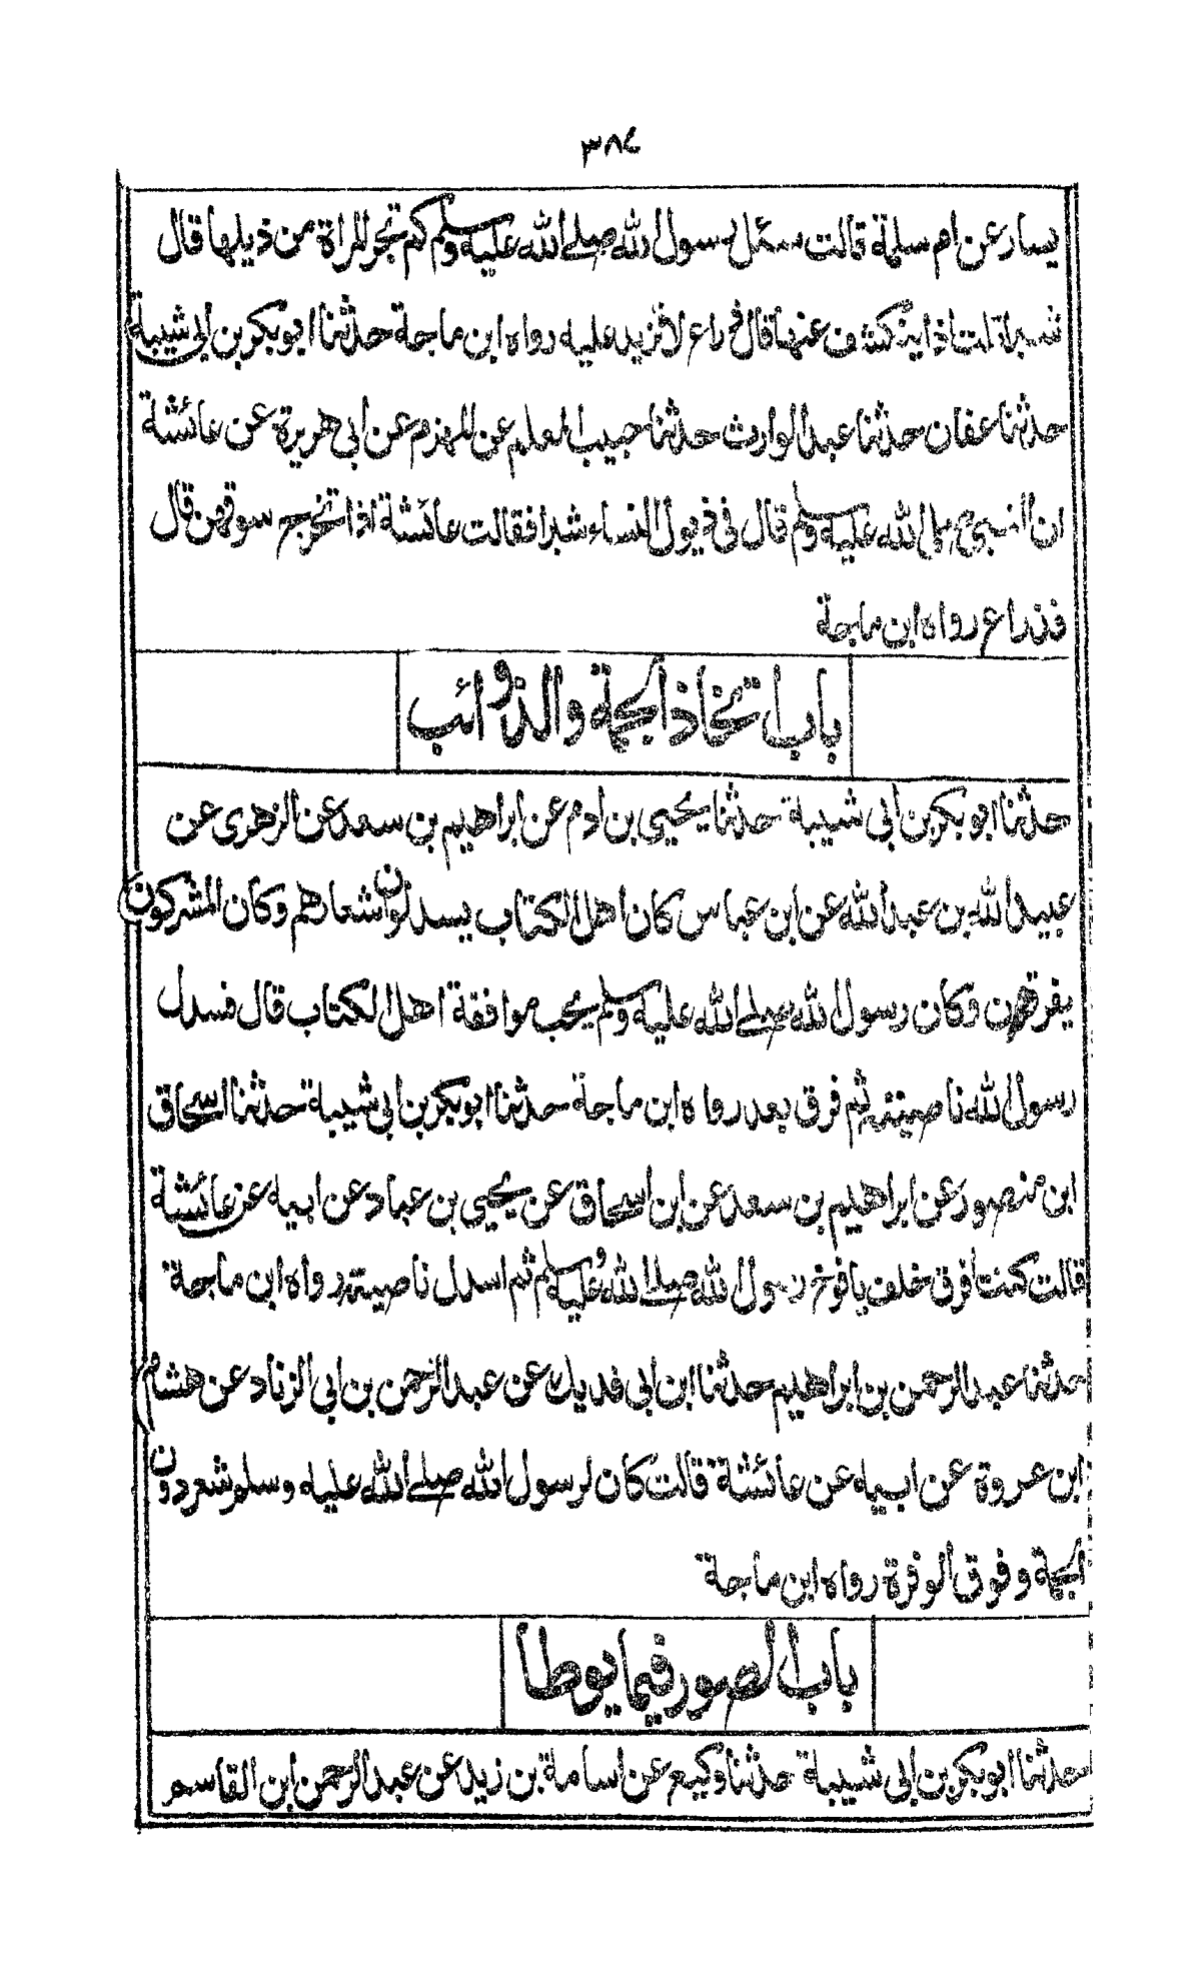 ٣٨٤
يسار عن ام سلمة قالت سئل رسول الله صلى الله عليه وسلم كم تجر المراة من ذيلها قال
شبرا قلت اذا ينكشف عنها قال ذراع لا تزيد عليه رواه ابن ماجة حدثنا ابو بكر بن ابي شيبة
حدثنا عفان حدثنا عبد الوارث حدثنا حبيب المعلم عن المهزم عن ابي هريرة عن عائشة
ان النبي صلى الله عليه وسلم قال في ذيول النساء شبرا فقالت عائشة اذا تخرج سوقهن قال
فذراع رواه ابن ماجة
باب اتخاذ الجمة والذوائب
حدثنا ابو بكر بن ابي شيبة حدثنا يحيى بن ادم عن ابراهيم بن سعد عن الزهري عن
عبيد الله بن عبد الله عن ابن عباس كان اهل الكتاب يسدلون اشعارهم وكان المشركون
يفرقون وكان رسول الله صلى الله عليه وسلم يحب موافقة اهل الكتاب قال فسدل
رسول الله ناصيته ثم فرق بعد رواه ابن ماجة حدثنا ابو بكر بن ابي شيبة حدثنا اسحاق
ابن منصور عن ابراهيم بن سعد عن ابن اسحاق عن يحيى بن عباد عن ابيه عن عائشة
قالت كنت افرق خلف يافوخ رسول الله صلى الله عليه وسلم ثم اسدل ناصيته رواه ابن ماجة
حدثنا عبد الرحمن بن ابراهيم حدثنا ابن ابي فديك عن عبد الرحمن بن ابي الزناد عن هشام
ابن عروة عن ابيه عن عائشة قالت كان لرسول الله صلى الله عليه وسلم شعر دون
الجمة وفوق الوفرة رواه ابن ماجة
باب الصور فيما يوطا
حدثنا ابو بكر بن ابي شيبة حدثنا وكيع عن اسامة بن زيد عن عبد الرحمن ابن القاسم